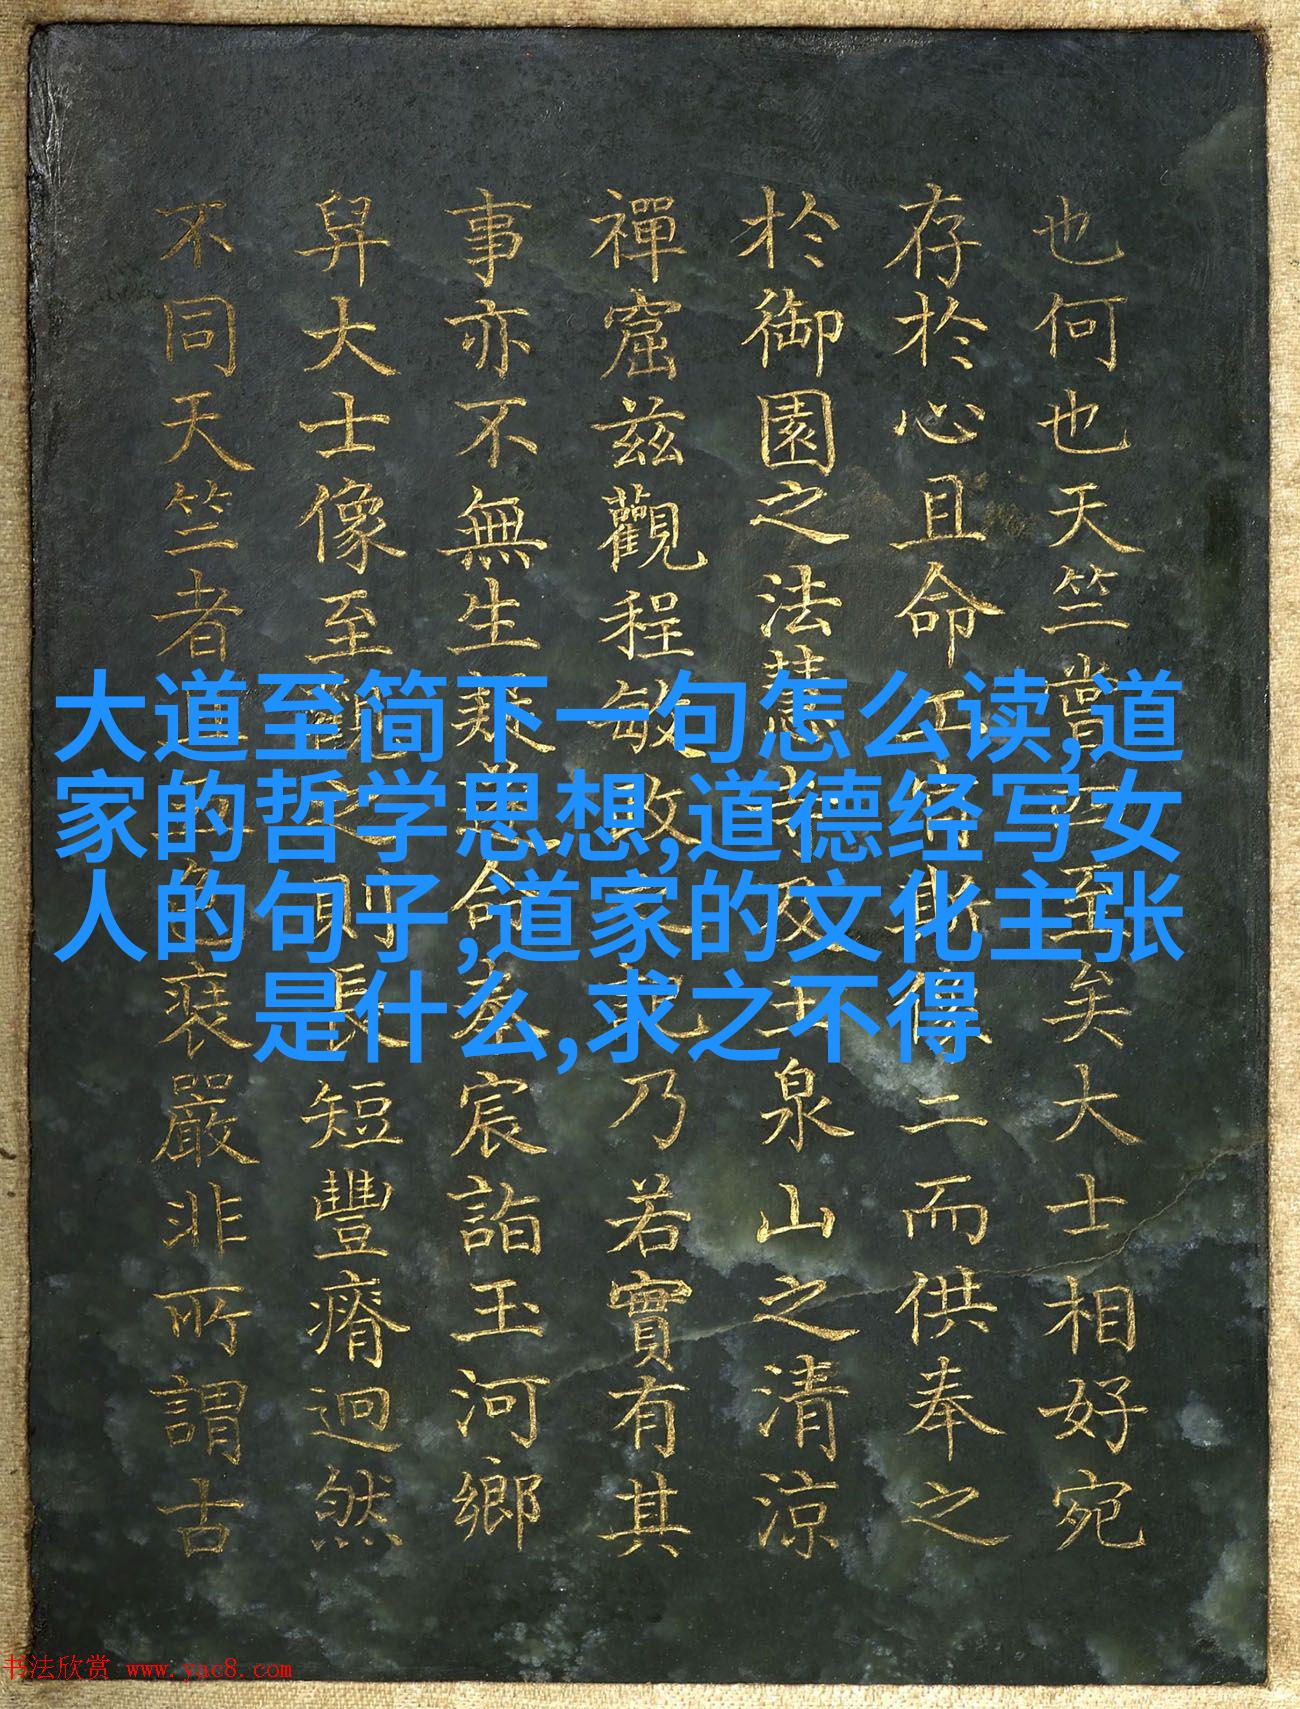 也何也天竺嘗至矣大士相好宛
存於心且命工像二而供奉之
於御園之法慧寺及玉泉山之清涼
禪窟茲觀程敏政之記乃若實有其
事亦不無生疑命奉宸詣玉河鄉
舁大士像至觀之則長短豐瘠迥然
不同天竺者嚴非所謂古
大道至简下一句怎么读,道
家的哲学思想,道德经写女
人的句子,道家的文化主张
是什么,求之不得
书法欣赏 www.yac8.com